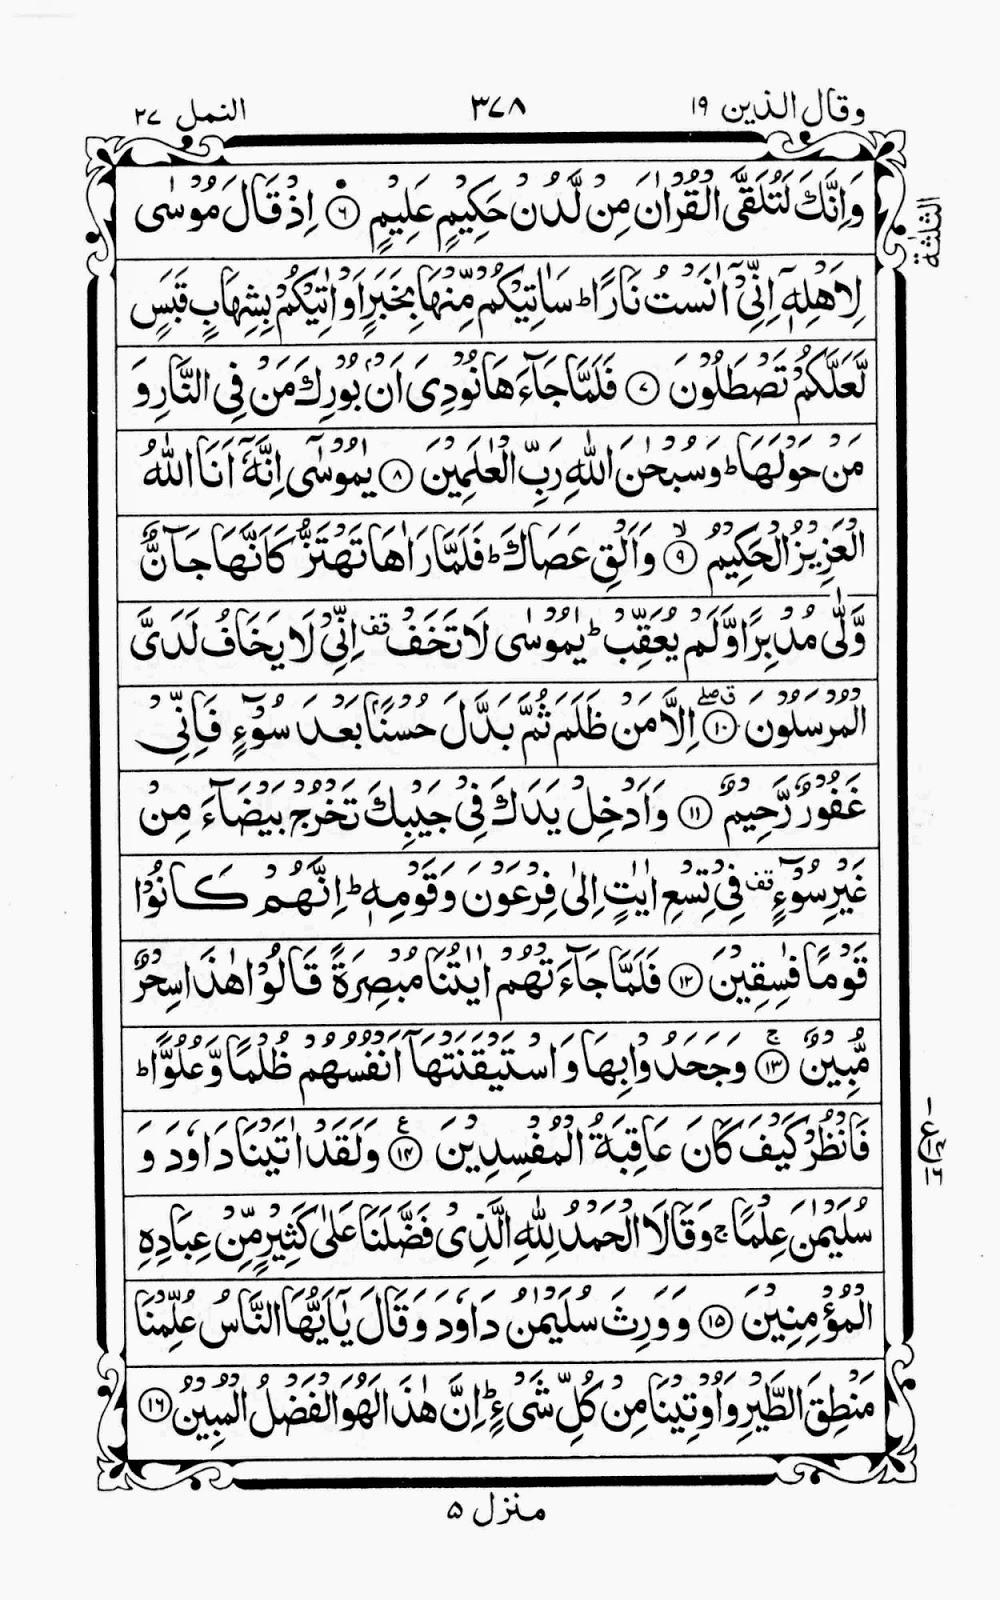 وقال الذين ١٩
٣٧٨
النمل ٢٧
الثلثة
وَاِنَّكَ لَتُلَقَّى الْقُرْاٰنَ مِنْ لَّدُنْ حَكِيْمٍ عَلِيْمٍ ۟ ﴿٦﴾ اِذْ قَالَ مُوْسٰى
لِاَهْلِهٖۤ اِنِّيْۤ اٰنَسْتُ نَارًا ؕ سَاٰتِيْكُمْ مِّنْهَا بِخَبَرٍ اَوْ اٰتِيْكُمْ بِشِهَابٍ قَبَسٍ
لَّعَلَّكُمْ تَصْطَلُوْنَ ﴿٧﴾ فَلَمَّا جَآءَهَا نُوْدِيَ اَنْۢ بُوْرِكَ مَنْ فِي النَّارِ وَ
مَنْ حَوْلَهَا ؕ وَسُبْحٰنَ اللّٰهِ رَبِّ الْعٰلَمِيْنَ ﴿٨﴾ يٰمُوْسٰۤى اِنَّهٗۤ اَنَا اللّٰهُ
الْعَزِيْزُ الْحَكِيْمُ ﴿٩﴾ۙ وَاَلْقِ عَصَاكَ ؕ فَلَمَّا رَاٰهَا تَهْتَزُّ كَاَنَّهَا جَآنٌّ
وَّلّٰى مُدْبِرًا وَّلَمْ يُعَقِّبْ ؕ يٰمُوْسٰى لَا تَخَفْ قف اِنِّيْ لَا يَخَافُ لَدَيَّ
الْمُرْسَلُوْنَ ﴿١٠﴾ ق صلے اِلَّا مَنْ ظَلَمَ ثُمَّ بَدَّلَ حُسْنًۢا بَعْدَ سُوْٓءٍ فَاِنِّيْ
غَفُوْرٌ رَّحِيْمٌ ﴿١١﴾ وَاَدْخِلْ يَدَكَ فِيْ جَيْبِكَ تَخْرُجْ بَيْضَآءَ مِنْ
غَيْرِ سُوْٓءٍ قف فِيْ تِسْعِ اٰيٰتٍ اِلٰى فِرْعَوْنَ وَقَوْمِهٖ ؕ اِنَّهُمْ كَانُوْا
قَوْمًا فٰسِقِيْنَ ﴿١٢﴾ فَلَمَّا جَآءَتْهُمْ اٰيٰتُنَا مُبْصِرَةً قَالُوْا هٰذَا سِحْرٌ
مُّبِيْنٌ ﴿١٣﴾ۚ وَجَحَدُوْا بِهَا وَاسْتَيْقَنَتْهَاۤ اَنْفُسُهُمْ ظُلْمًا وَّعُلُوًّا ؕ
فَانْظُرْ كَيْفَ كَانَ عَاقِبَةُ الْمُفْسِدِيْنَ ﴿١٤﴾ ع وَلَقَدْ اٰتَيْنَا دَاوٗدَ وَ
١ ع ١٤ ١٦
سُلَيْمٰنَ عِلْمًا ۚ وَقَالَا الْحَمْدُ لِلّٰهِ الَّذِيْ فَضَّلَنَا عَلٰى كَثِيْرٍ مِّنْ عِبَادِهِ
الْمُؤْمِنِيْنَ ﴿١٥﴾ وَوَرِثَ سُلَيْمٰنُ دَاوٗدَ وَقَالَ يٰۤاَيُّهَا النَّاسُ عُلِّمْنَا
مَنْطِقَ الطَّيْرِ وَاُوْتِيْنَا مِنْ كُلِّ شَيْءٍ ؕ اِنَّ هٰذَا لَهُوَ الْفَضْلُ الْمُبِيْنُ ﴿١٦﴾
منزل ٥